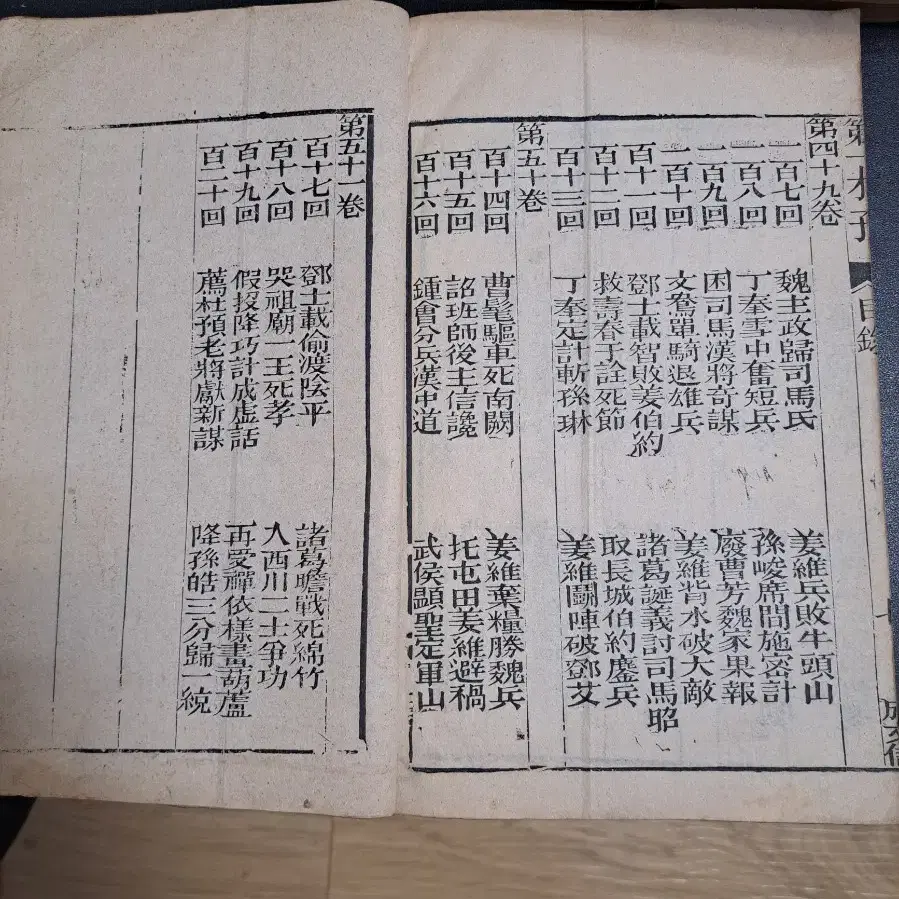 第一才子 目錄
第四十九卷
一百七回 魏主政歸司馬氏 姜維兵敗牛頭山
一百八回 丁奉雪中奮短兵 孫峻席間施密計
一百九回 困司馬漢將奇謀 廢曹芳魏家果報
一百十回 文鴦單騎退雄兵 姜維背水破大敵
百十一回 鄧士載智敗姜伯約 諸葛誕義討司馬昭
百十二回 救壽春于詮死節 取長城伯約鏖兵
百十三回 丁奉定計斬孫琳 姜維鬭陣破鄧艾
第五十卷
百十四回 曹髦驅車死南闕 姜維棄糧勝魏兵
百十五回 詔班師後主信讒 托屯田姜維避禍
百十六回 鍾會分兵漢中道 武侯顯聖定軍山
第五十一卷
百十七回 鄧士載偷渡陰平 諸葛瞻戰死綿竹
百十八回 哭祖廟一王死孝 入西川二士爭功
百十九回 假投降巧計成虛話 再受禪依樣畫葫蘆
百二十回 薦杜預老將獻新謀 降孫皓三分歸一統